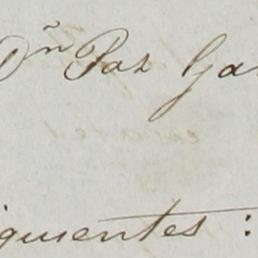 Dⁿ Paz Gar
iguientes :